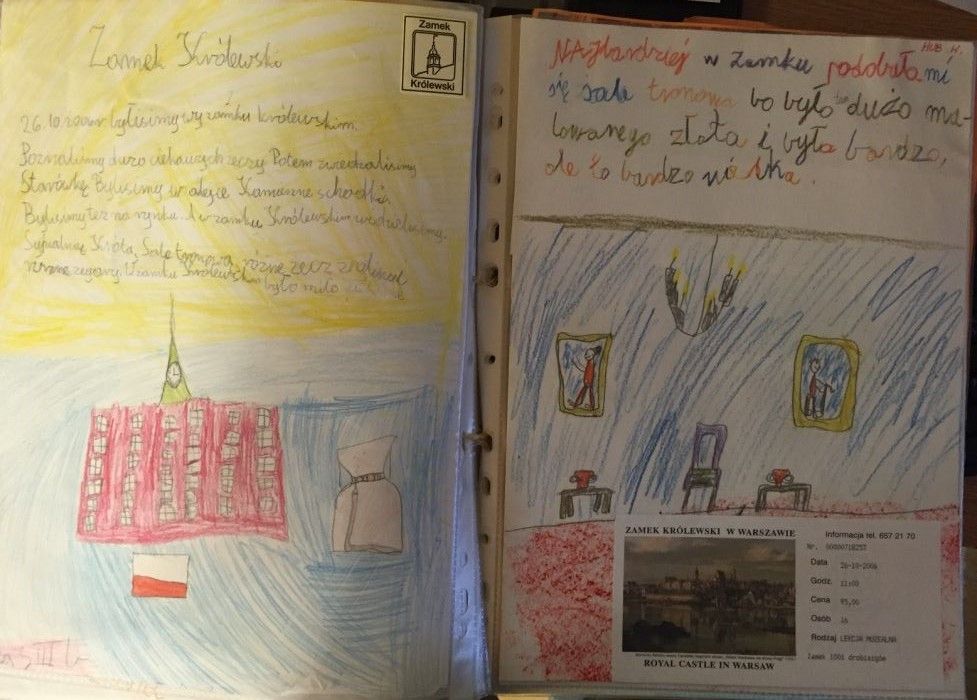 Zamek Królewski
Zamek
Królewski
26.10.2006r byliśmy w zamku królewskim.
Poznaliśmy dużo ciekawych rzeczy. Potem zwiedzaliśmy
Starówkę. Byliśmy w alejce Kamienne schodki
Byliśmy też na rynku. A w zamku Królewskim widzieliśmy.
Sypialnię Króla, Salę tronową, różne rzeczy
zegary. W zamku Królewskim było miło
III b
HUB W.
NAjbardziej w zamku podobała mi
się sala tronowa bo było tam dużo ma-
lowanego złota i była bardzo,
ale to bardzo wielka.
ZAMEK KRÓLEWSKI W WARSZAWIE
ROYAL CASTLE IN WARSAW
Informacja rel. 657 21 70
Nr.
Data 26-10-2006
Godz. 11:00
Cena 85,00
Osób 16
Rodzaj LEKCJA MUZEALNA
Zamek 1001 drobiazgów